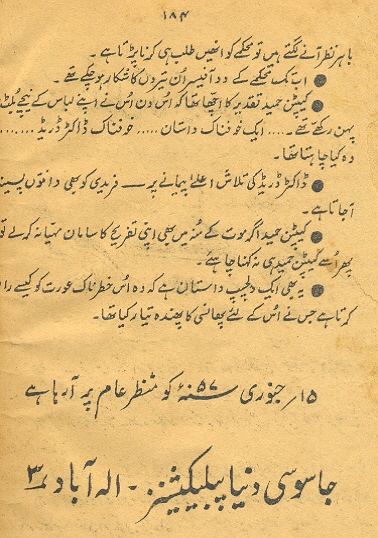 ۱۸۴
باہر نظر آنے لگتے ہیں تو محکمے کو انھیں طلب ہی کرنا پڑتا ہے۔
● اب تک محکمے کے دو آفیسر اُن تیروں کا شکار ہو چکے تھے۔
● کیپٹن حمید تقدیر کا اچھا تھا کہ اُس دن اُس نے اپنے لباس کے نیچے بلٹ
پہن رکھے تھے۔.... ایک خوفناک داستان ..... خوفناک ڈاکٹر ڈریڈ ........
وہ کیا چاہتا تھا۔
● ڈاکٹر ڈریڈ کی تلاش اعلےٰ پیمانے پر — فریدی کو بھی دانتوں پسینہ
آ جاتا ہے۔
● کیپٹن حمید اگر موت کے منہ میں بھی اپنی تفریح کا سامان مہیا نہ کر لے تو
پھر اُسے کیپٹن حمید ہی نہ کہنا چاہئے۔
● یہ بھی ایک دلچسپ داستان ہے کہ وہ اُس خطرناک عورت کو کیسے را
کرتا ہے جس نے اُس کے لئے پھانسی کا پھندہ تیار کیا تھا۔
۱۵؍ جنوری ۵۷ سنہء کو منظر عام پر آ رہا ہے
جاسوسی دنیا پبلیکیشنز۔ الہ آباد نمبر ۳